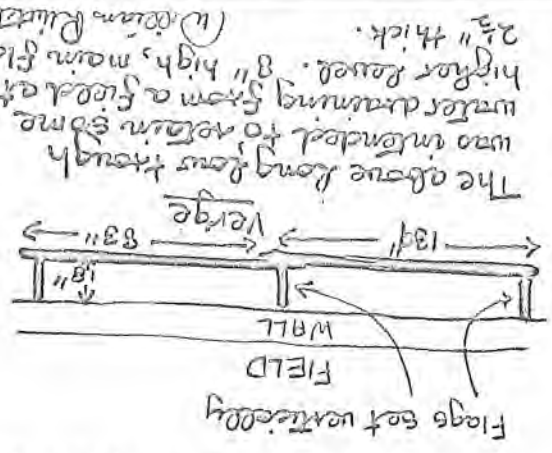 Flags set vertically
FIELD
WALL
18"
139" 83"
Verge
The above long low trough
was intended to retain some
water draining from a field at
higher level. 8" high, main fla
2½" thick. (William